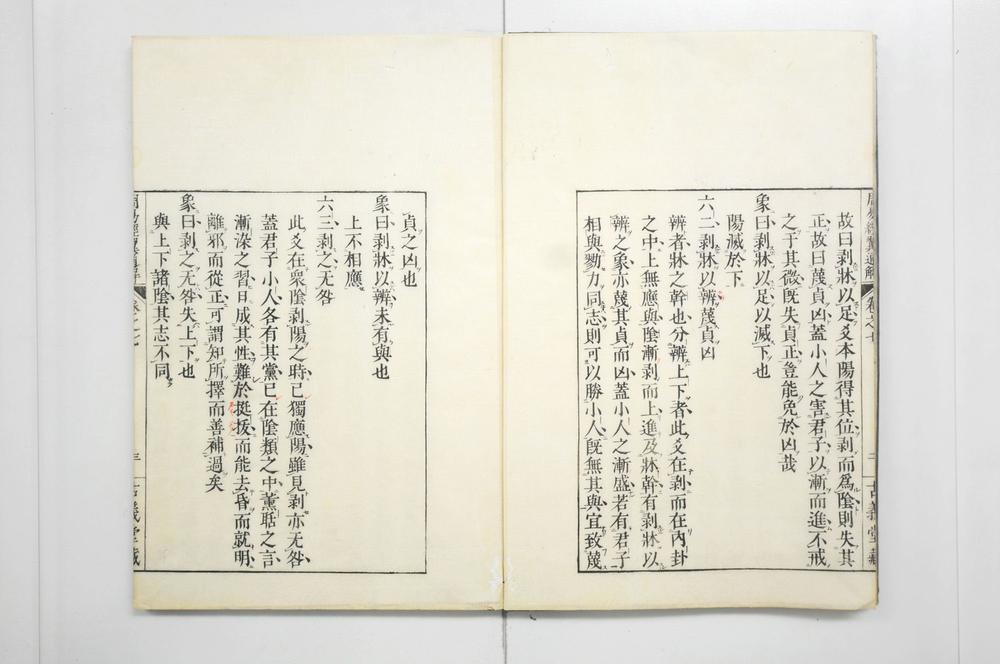 周易經翼通解 卷之七 二 古義堂藏
故曰剥牀以足爻本陽得其位剥而爲陰則失其
正故曰蔑貞凶蓋小人之害君子以漸而進不戒
之于其微旣失貞正豈能免於凶哉
象曰剥牀以足以滅下也
陽滅於下
六二剥牀以辨蔑貞凶
辨者牀之幹也分辨上下者此爻在剥而在內卦
之中上無應與陰漸剥而上進及牀幹有剥牀以
辨之象亦蔑其貞而凶蓋小人之漸盛若有君子
相與勠力同志則可以勝小人旣無其與宜致蔑
貞之凶也
象曰剥牀以辨未有與也
上不相應
六三剥之无咎
此爻在衆陰剥陽之時已獨應陽雖見剥亦无咎
蓋君子小人各有其黨已在陰類之中薰聒之言
漸染之習日成其性難於挺拔而能去昏而就明
離邪而從正可謂知所擇而善補過矣
象曰剥之无咎失上下也
與上下諸陰其志不同
周易經翼通解 卷之七 三 古義堂藏